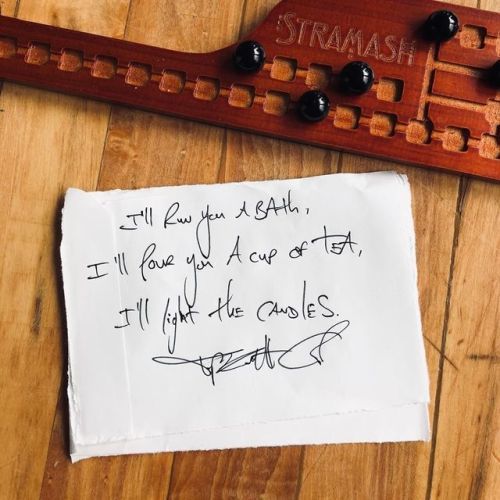 STRAMASH
I'll Run you A BAth,
I'll Pour you A cup of TEA,
I'll light the CANDlES.